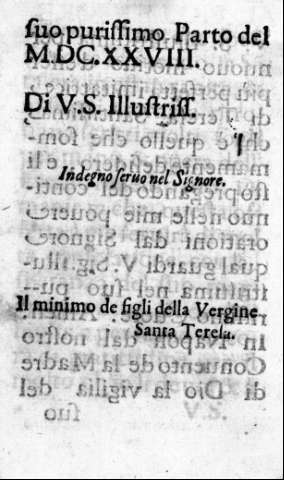 suo purissimo Parto del
M.DC.XXVIII.
Di V.S. Illustriss.
Indegno seruo nel Signore.
Il minimo de figli della Vergine
Santa Teresa.